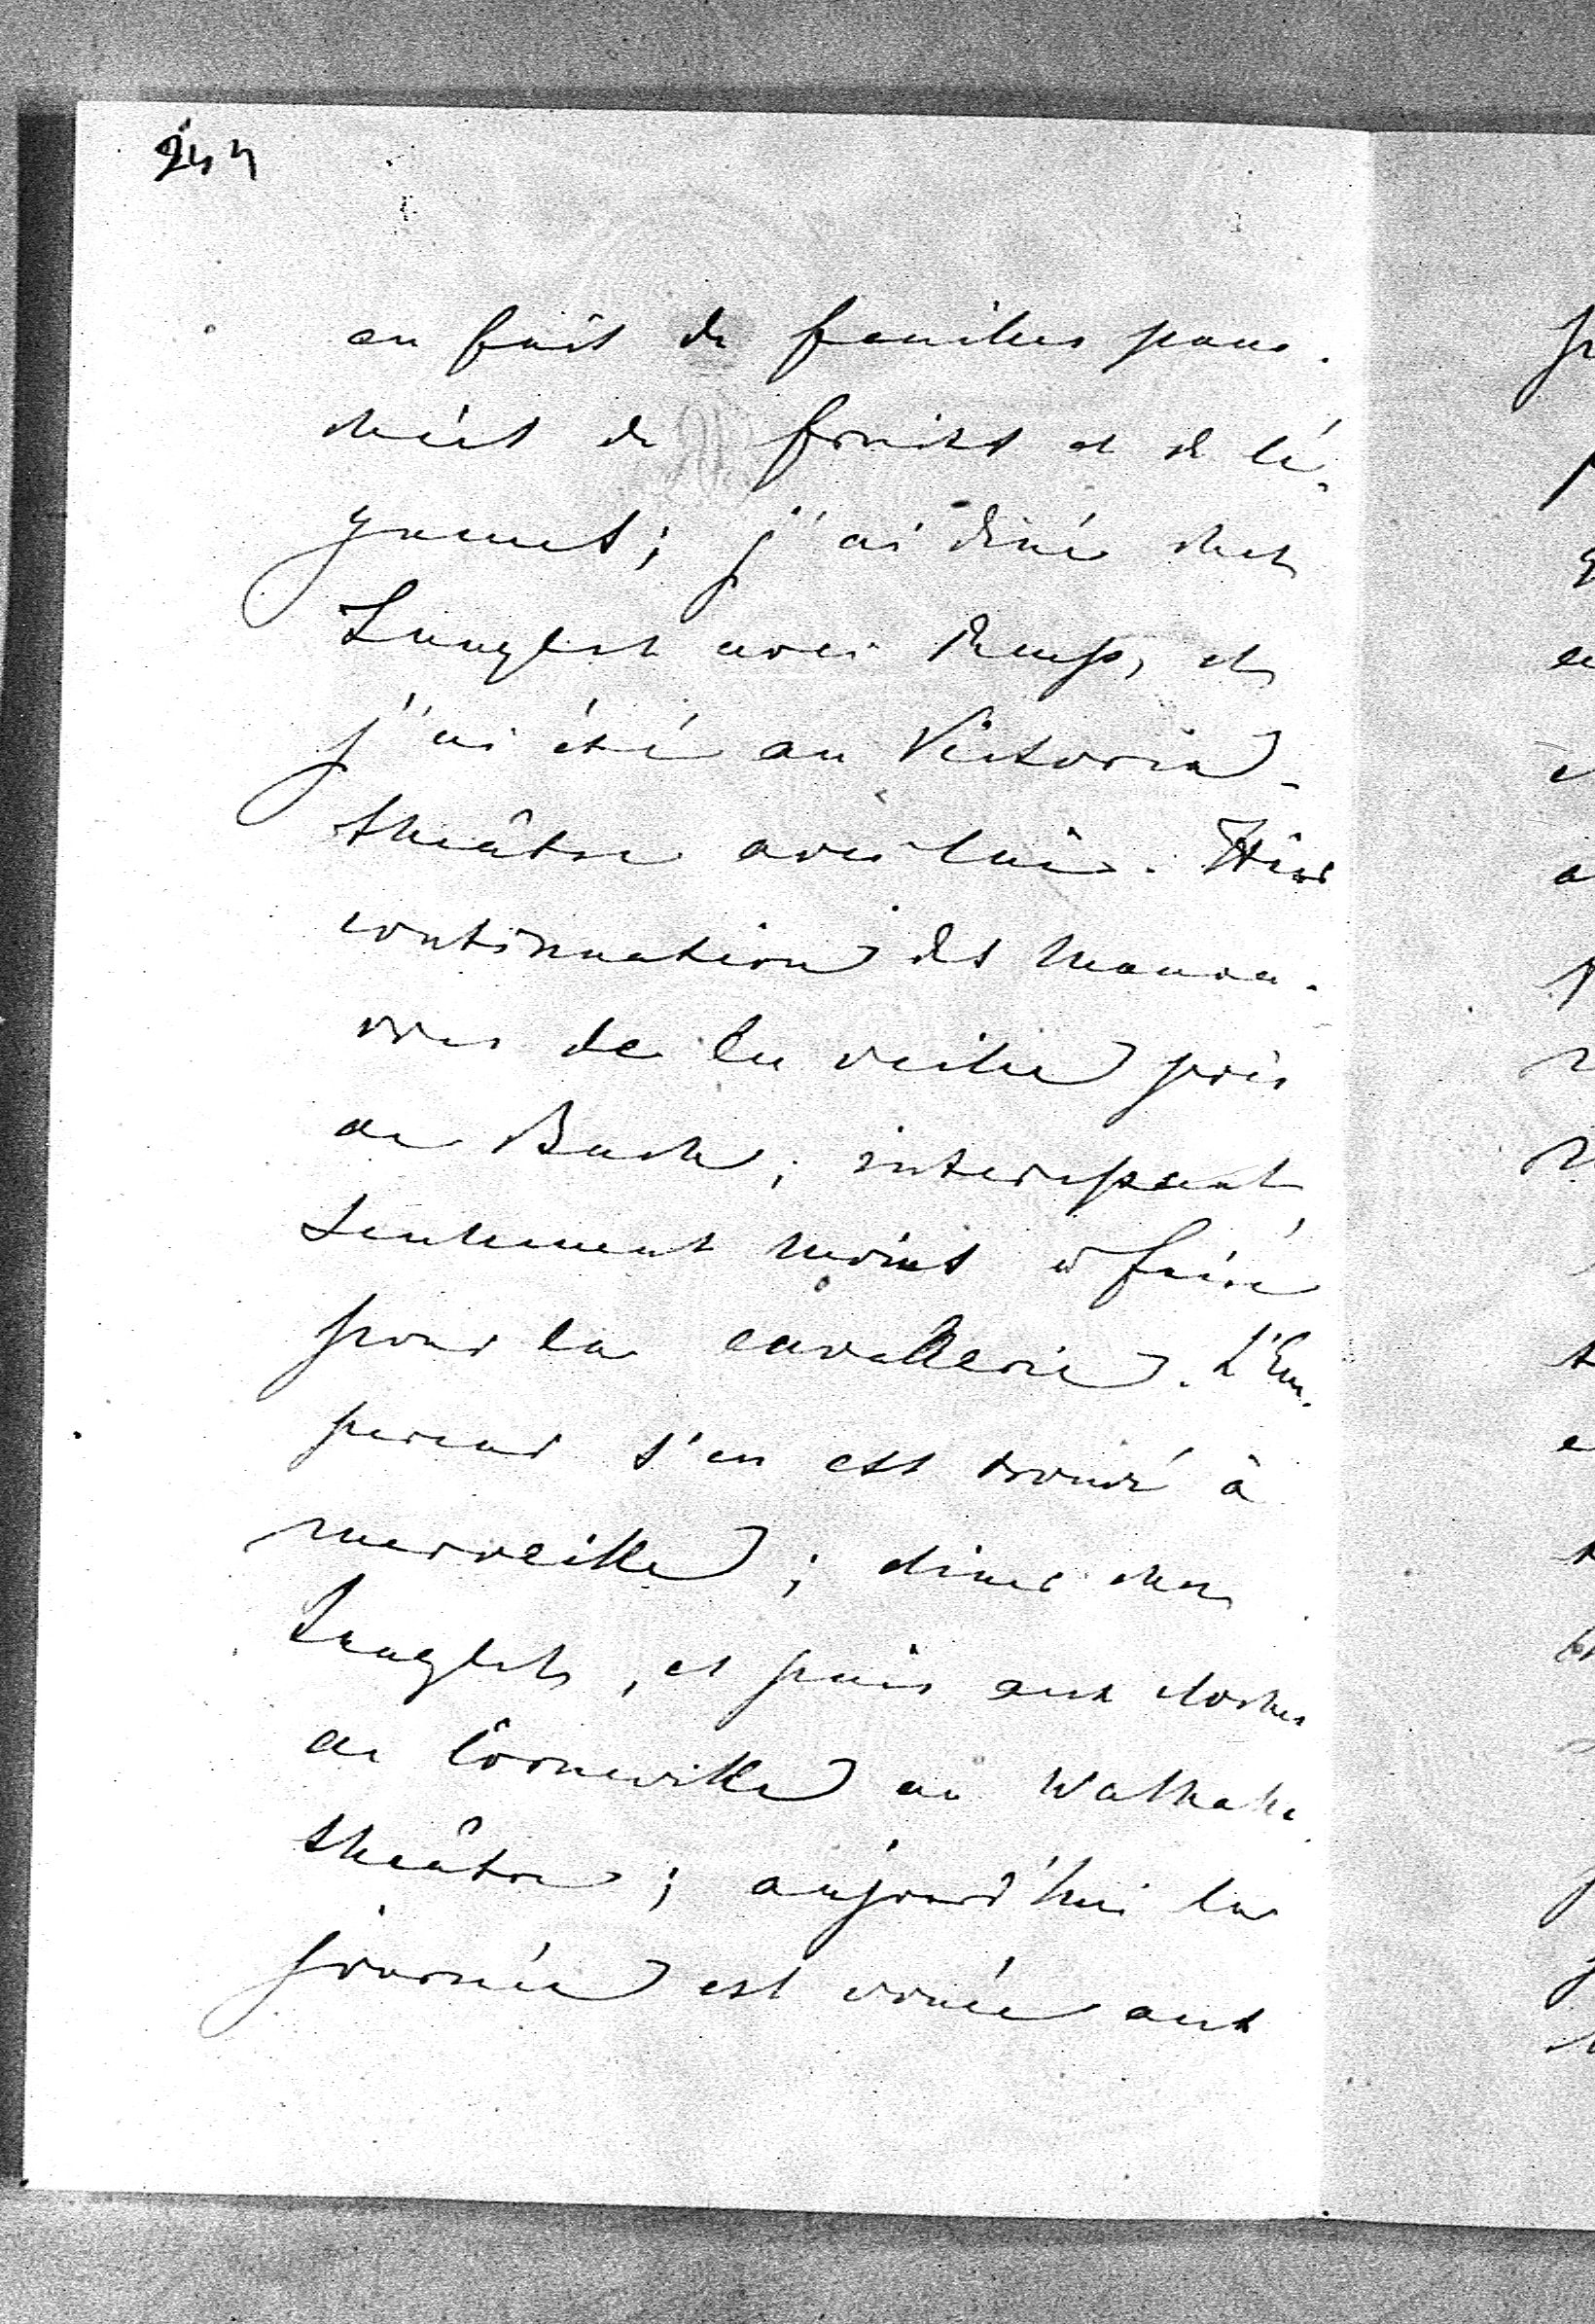 244
en fait de feuilles pana-
chées de fruits et de lé-
gumes; j'ai diné chez
Langlet avec Knupp, et
j'ai été au Victoria-
théâtre avec lui. Hier
continuation des manœu-
vres de la veille près
de Buch; interessant,
seulement moins à faire
pour la cavallerie. L'Em-
pereur s'en est trouvé à
merveille; diner chez
Langlet, et puis aux cloches
de Corneville au Walhalla
théâtre; aujourd'hui la
journée est vouée aux